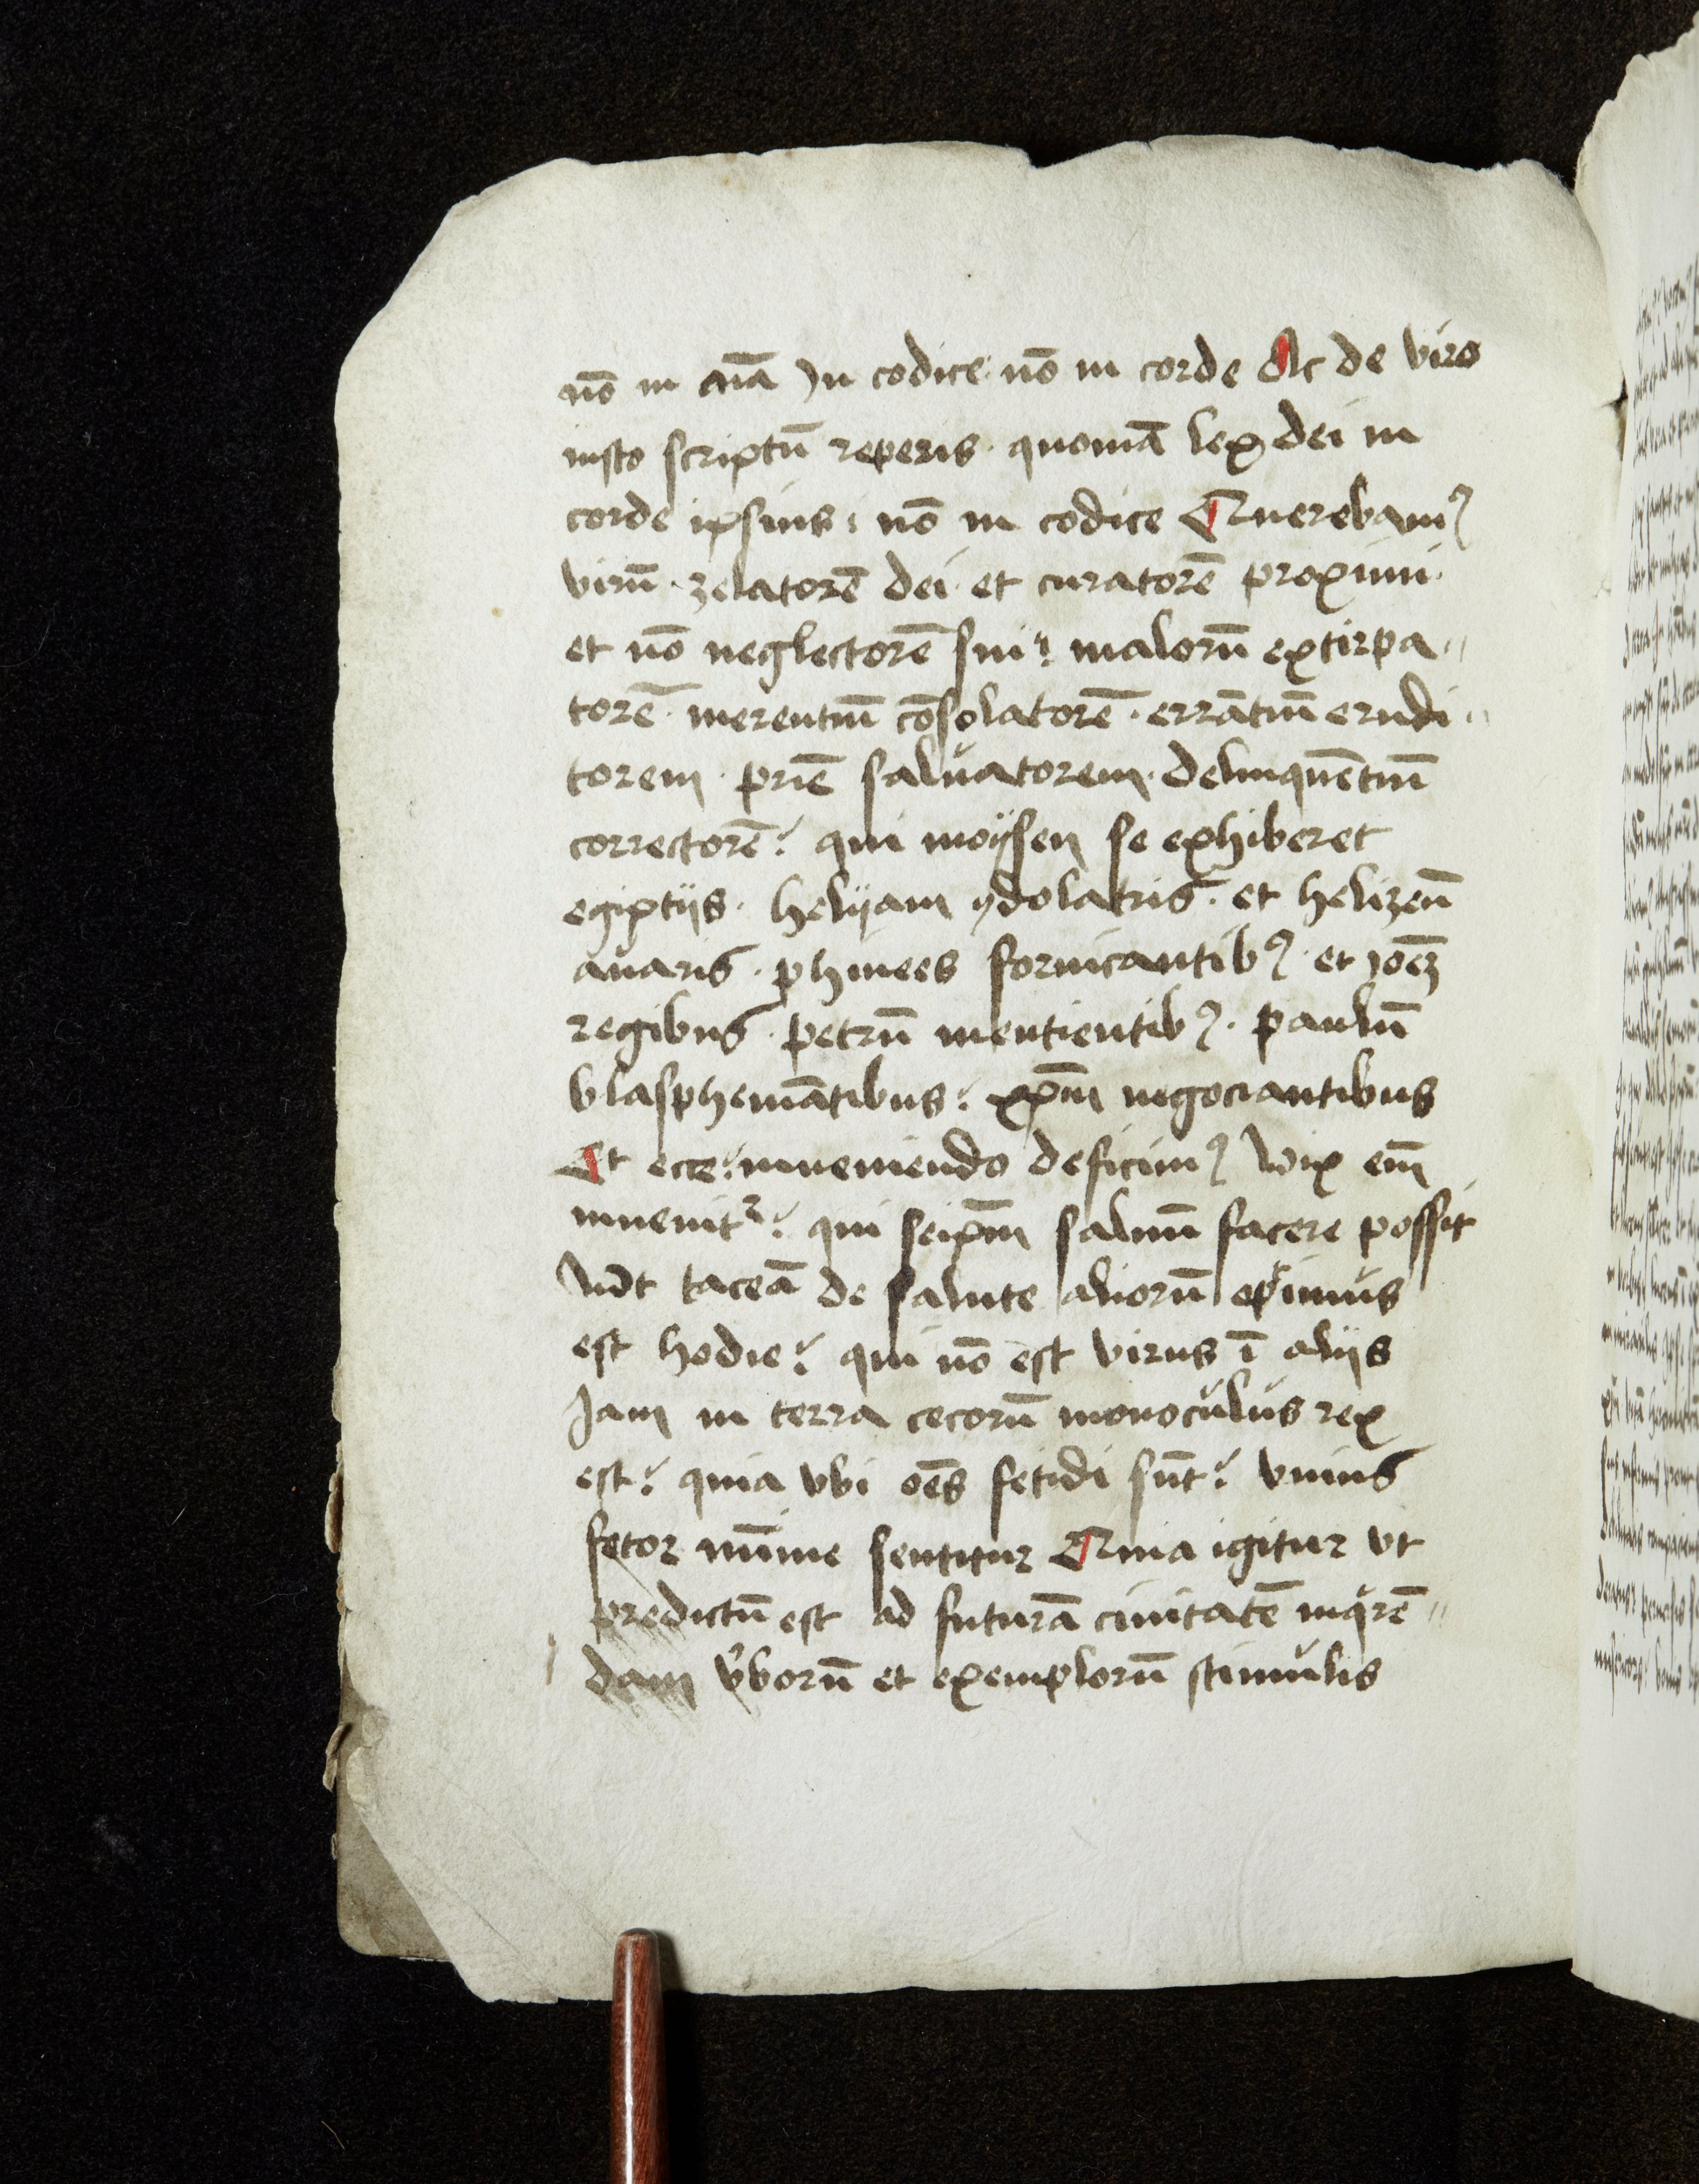 nō in aīa In codice nō in corde Ac de viro
iusto scriptū reperis · quoniā lex dei in
corde ipsius : nō in codice Querebamꝰ
virū · zelatorē dei · et curatorē proximi ·
et nō neglectorē sui : malorū extirpa〃
torē · merentiū cōsolatorē · errātiū erudi〃
torem · priē salvatorem · delinquētiū
correctorē : qui moÿsen se exhiberet
egiptÿs · helÿam ydolatris · et helizeū
auaris · phinees fornicantibꝰ · et
regibus · petrū mentientibꝰ · paulū
blasphemātibus : xp̄m negociantibus
Et ecce : inueniendo deficimꝰ Vix em̄
inuenitᷣ : qui seip̄m saluū facere possit
Vt taceā de salute aliorū optimus
est hodie : qui nō est virus ī alÿs
Iam in terra cecorū monoculus rex
est : quia vbi oēs fetidi sūt : vnius
fetor minime sentitur Quia igitur vt
predictū est ad futurā ciuitatē inqͥrē〃
dam v̓borū et exemplorū stimulis